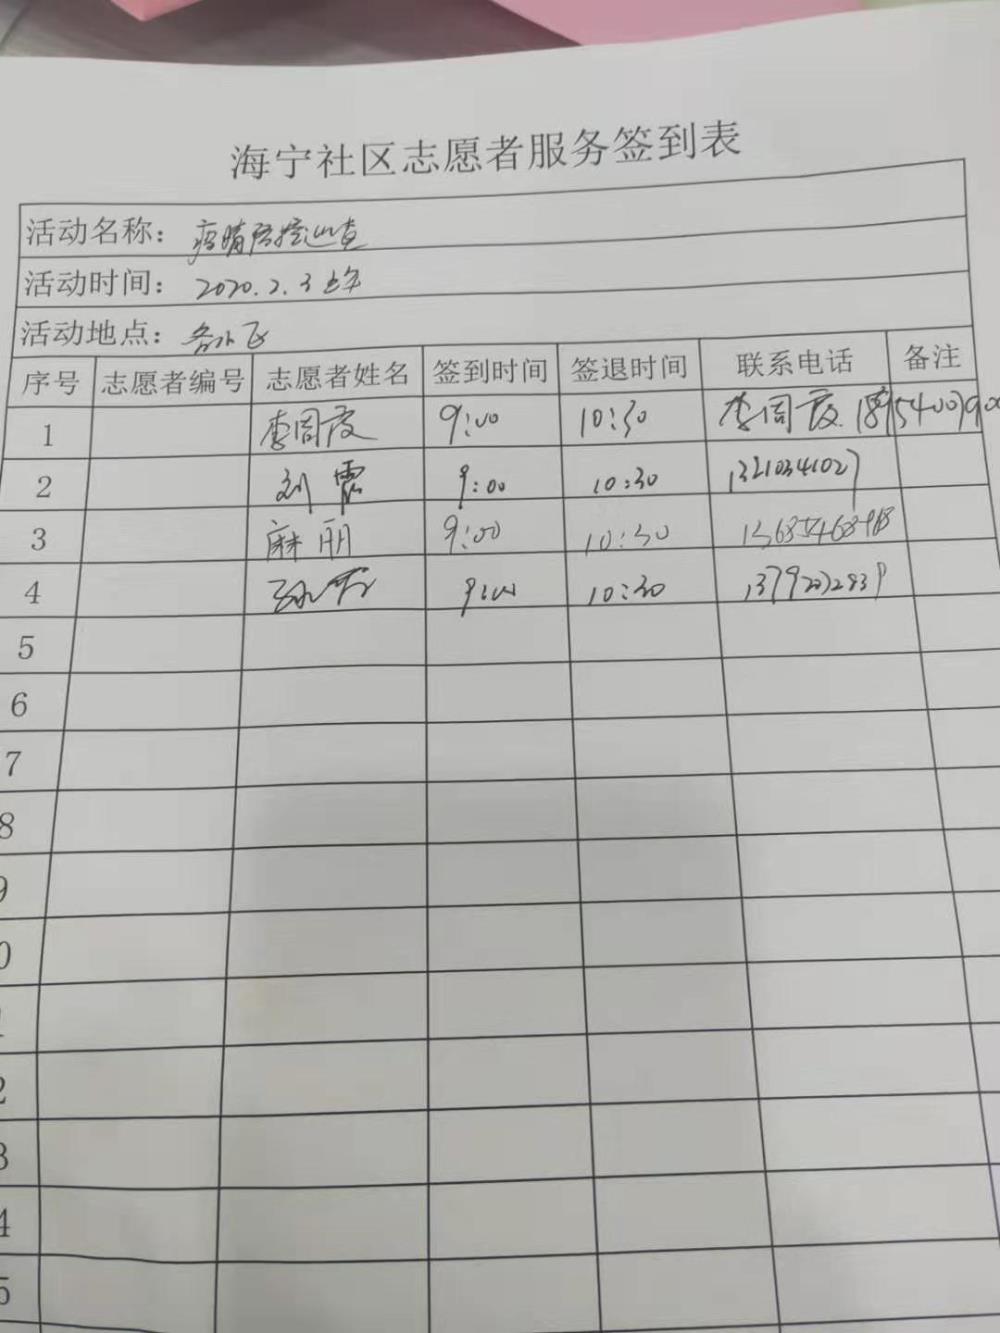 海宁社区志愿者服务签到表
活动名称：疫情防控巡查
活动时间：2020.2.3 上午
活动地点：各小区
序号 志愿者编号 志愿者姓名 签到时间 签退时间 联系电话 备注
1 李周霞 9:00 10:30 李周霞
2 刘霞 9:00 10:30 13210341027
3 麻丽 9:00 10:30
4 9:00 10:30
5
6
7
8
9
0
1
2
3
4
5